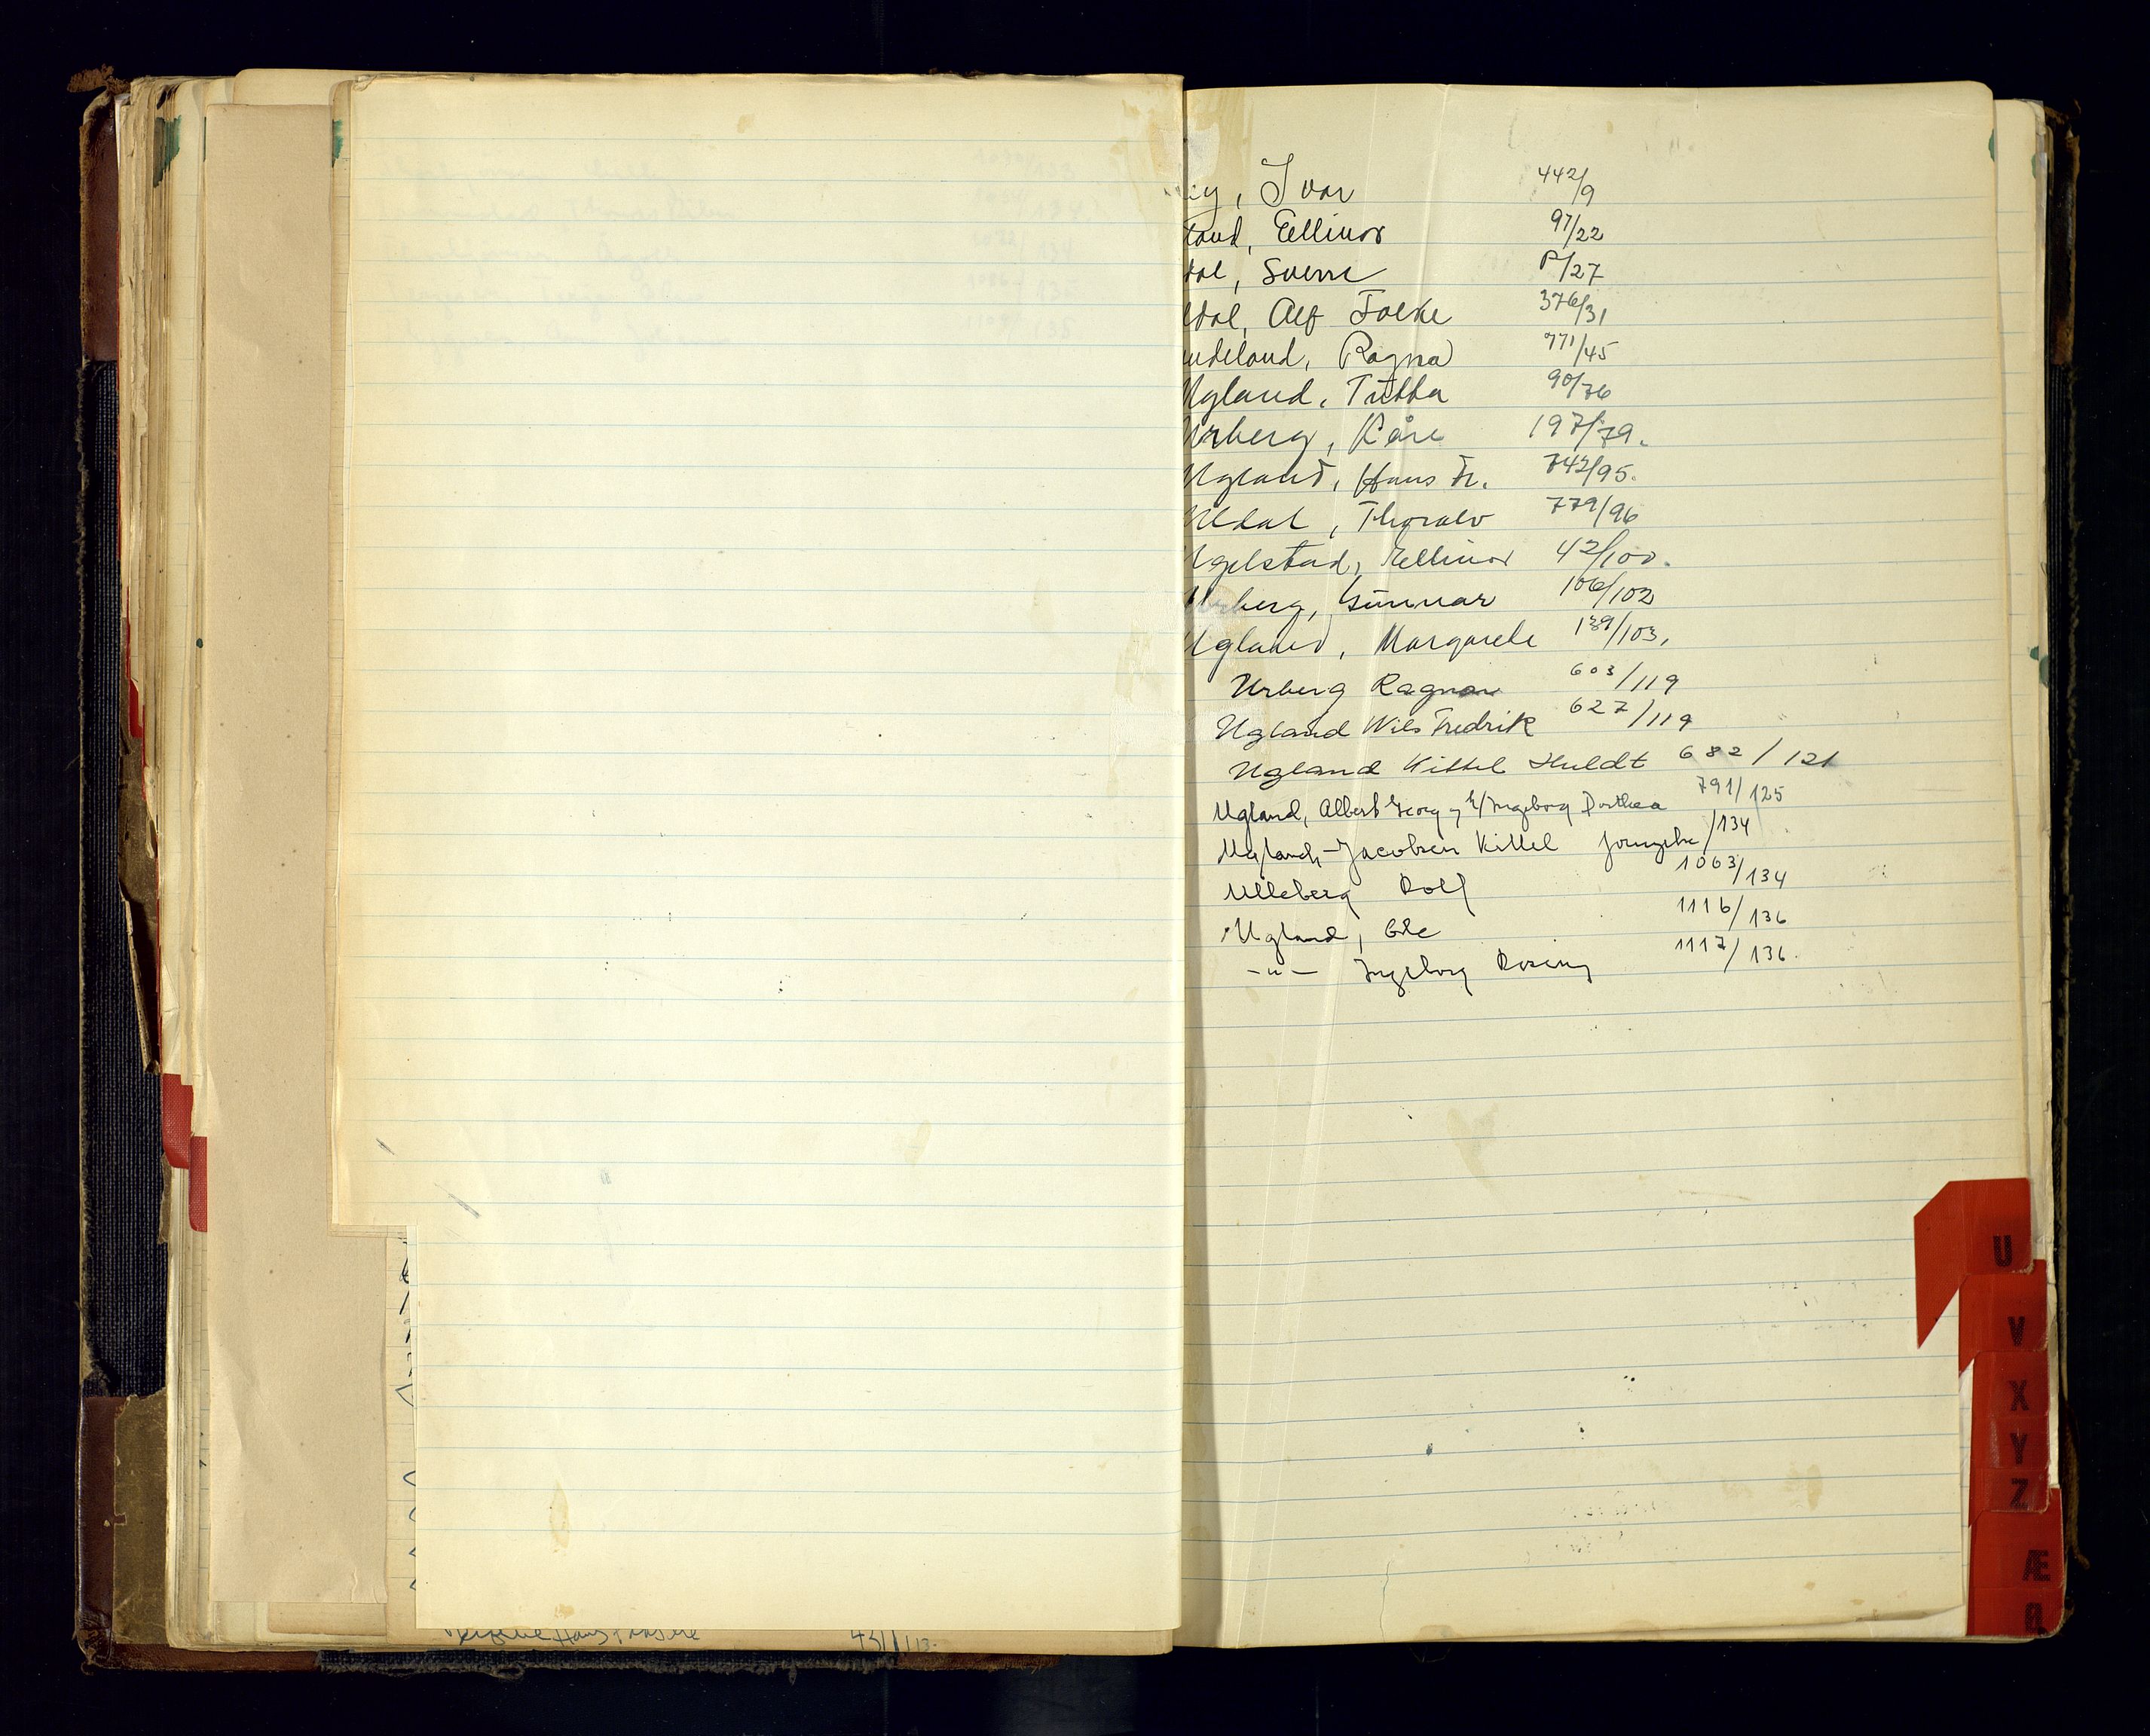 , Ivar 442/9
land, Ellinor 97/22
dal, Sverre P/27
ldal, Alf Folke 376/31
undeland, Ragna 771/45
Ugland, Tutta 90/76
Urberg, Kåre 197/79.
Ugland, Hans Fr. 742/95.
Uldal, Thoralv 779/96
Ugelstad, Ellinor 42/100.
Urberg, Gunnar 106/102
Ugland, Margarethe 139/103.
Urberg Ragnar 603/119
Ugland Nils Fredrik 627/119
Ugland Kittel Huldt 682/121
Ugland, Albert Georg og E/Ingeborg Dorthea 791/125
Ugland-Jacobsen Kittel /134
Ulleberg Rolf 1063/134
Ugland, Ole 1116/136
-"- Ingeborg Rosing 1117/136.
U
V
X
Y
Z
Æ
Hans 431/113.